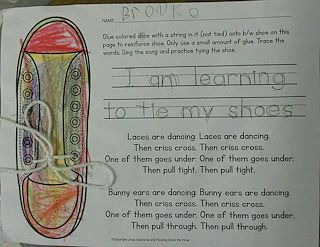 NAME BronKo
Glue colored shoe with a string in it (not tied) onto b/w shoe on this
page to reinforce shoe. Only use a small amount of glue. Trace the
words. Sing the song and practice tying the shoe.
I am learning
to tie my shoes
Laces are dancing. Laces are dancing.
Then criss cross. Then criss cross.
One of them goes under. One of them goes under.
Then pull tight. Then pull tight.
Bunny ears are dancing. Bunny ears are dancing.
Then criss cross. Then criss cross.
One of them goes under. One of them goes under.
Then pull through. Then pull through.